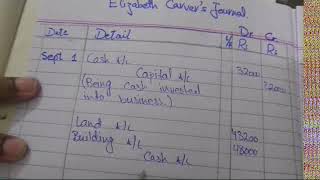 Elizabeth Carver's Journal
Date Detail L/F Dr Rs Cr Rs
Sept 1 Cash a/c 32000
Capital a/c 32000
(Being cash invested
into business)
Land a/c 43200
Building a/c 48000
Cash a/c